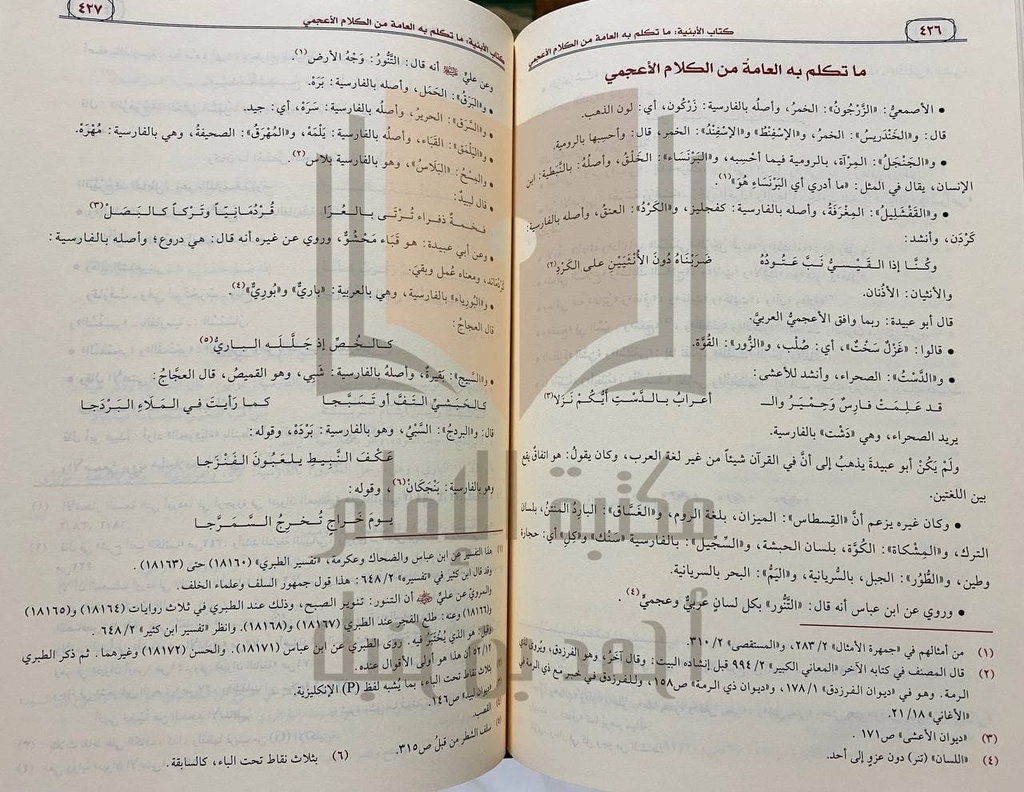 ٤٢٦
كتاب الأبنية: ما تكلم به العامة من الكلام الأعجمي
ما تكلم به العامة من الكلام الأعجمي
• الأصمعيُّ: «الزَّرَجُونُ»: الخمرُ، وأصلُه بالفارسية: زَرْكُون، أي: لون الذهب.
قال: و«الخَنْدَرِيسُ»: الخمرُ، و«الإسْفَنْطُ» و«الإسْفِنْدُ»: الخمر، قال: وأحسِبها بالرومية.
• و«السَّجَنْجَلُ»: المِرْآة، بالرومية فيما أحْسِبه، و«البَرْنَسَاء»: الخَلْقُ، وأصلُهُ: بالنَّبَطِية: ابن
الإنسان، يقال في المثل: «ما أدري أي البَرْنَسَاءِ هُوَ»(١).
• و«القَفْشَلِيلُ»: المِغْرَفَةُ، وأصله بالفارسية: كفجليز، و«الكَرْدُ»: العنقُ، وأصله بالفارسية:
كَرْدَن، وأنشد:
وكُنَّا إذا القَيْسِيُّ نَبَّ عَتُودُهُ ضَرَبْنَاهُ دُونَ الأُنْثَيَيْنِ على الكَرْدِ(٢)
والأنثيان: الأذُنان.
قال أبو عبيدة: ربما وافق الأعجميُّ العربيَّ.
• قالوا: «غَزْلٌ سَخْتٌ»، أي: صُلْب، و«الزُّور»: القُوَّة.
• و«الدَّسْتُ»: الصحراء، وأنشد للأعشى:
قد عَلِمَتْ فارِسٌ وَحِمْيَرُ والـ أعرابُ بالدَّسْتِ أيُّكُمْ نَزَلَا(٣)
يريد الصحراء، وهي «دَشْت» بالفارسية.
ولَمْ يَكُنْ أبو عبيدةَ يذهبُ إلى أنَّ في القرآن شيئاً من غير لغة العرب، وكان يقولُ: هو اتفاقٌ يقع
بين اللغتين.
• وكان غيره يزعم أنَّ «القِسطاس»: الميزان، بلغة الروم، و«الغَسَّاق»: الباردُ المنتنُ، بلسان
الترك، و«المِشْكاة»: الكُوَّة، بلسان الحبشة، و«السِّجِّيل»: بالفارسية «سَنْك» و«كلِ» أي: حجارة
وطين، و«الطُّوْر»: الجبل، بالسُّريانية، و«اليَمُّ»: البحر بالسريانية.
• وروي عن ابن عباس أنه قال: «التَّنُّور» بكل لسانٍ عربيٍّ وعجميٍّ(٤)
(١) من أمثالهم في «جمهرة الأمثال» ٢٨٣/٢، و«المستقصى» ٣١٠/٢.
(٢) قال المصنف في كتابه الآخر «المعاني الكبير» ٩٩٤/٢ قبل إنشاده البيت: وقال آخرُ، وهو الفرزدق، ويُروى لذي
الرمة. وهو في «ديوان الفرزدق» ١٧٨/١، و«ديوان ذي الرمة» ص١٥٨، وللفرزدق في خبر مع ذي الرمة في
«الأغاني» ٢١/١٨.
(٣) «ديوان الأعشى» ص١٧١.
(٤) «اللسان» (تنر) دون عزو إلى أحد.
٤٢٧
كتاب الأبنية: ما تكلم به العامة من الكلام الأعجمي
وعن عليٍّ ﵁ أنه قال: التَّنُّورُ: وَجْهُ الأرض(١).
• و«البَرَقُ»: الحَمَل، وأصله بالفارسية: بَرَهْ.
• و«السَّرَق»: الحريرُ، وأصله بالفارسية: سَرَهْ، أي: جيد.
• و«اليَلْمَق»: القَبَاء، وأصله بالفارسية: يَلْمَهْ، و«المُهْرَقُ»: الصحيفةُ، وهي بالفارسية: مُهْرَهْ.
• و«المِسْحُ»: «البَلَاسُ»، وهو بالفارسية بلاس(٢).
• قال لبيدٌ:
فخمةٌ ذفراء تُرْتَى بالعُرَا قُرْدُمَانِيّاً وتَرْكاً كالبَصَلْ(٣)
• وعن أبي عبيدة: هو قَبَاء مَحْشُوٌّ، وروي عن غيره أنه قال: هي دروع؛ وأصله بالفارسية:
كَرْدُمانَد، ومعناه عُمِل وبقيَ.
• و«البُورياء» بالفارسية، وهي بالعربية: «باريٌّ» و«بُورِيٌّ»(٤)
قال العجاجُ:
كالخُصِّ إذ جَلَّلَه الباريُّ(٥)
• و«السَّبيج»: بَقيرةٌ، وأصله بالفارسية: شَبِي، وهو القميصُ، قال العجَّاجُ:
كالحَبَشِيِّ التَفَّ أو تَسَبَّجا كما رأيتَ في المَلَاءِ البَرْدَجا
قال: و«البردجُ»: السَّبْيُ، وهو بالفارسية: بَرْدَهْ، وقوله:
عَكْفَ النَّبِيطِ يلعبُونَ الفَنْزَجا
وهو بالفارسية: بَنْجَكَانْ(٦)، وقوله:
يومَ خَراجٍ تُخرِجُ السَّمَرَّجا
(١) هذا التفسير عن ابن عباس والضحاك وعكرمة، «تفسير الطبري» (١٨١٦٠) حتى (١٨١٦٣).
وقد قال ابن كثير في «تفسيره» ٦٤٨/٢: هذا قول جمهور السلف وعلماء الخلف.
والمرويُّ عن عليٍّ ﵁ أن التنور: تنوير الصبح، وذلك عند الطبري في ثلاث روايات (١٨١٦٤) و(١٨١٦٥)
و(١٨١٦٦) وعنه: طلع الفجر عند الطبري (١٨١٦٧) و(١٨١٦٨). وانظر «تفسير ابن كثير» ٦٤٨/٢.
وقيل: هو الذي يُخْتَبَزُ فيه. روى الطبري عن ابن عباس (١٨١٧١). والحسن (١٨١٧٢) وغيرهما. ثم ذكر الطبري
٥٢/١٢ أن هذا هو أولى الأقوال عنده.
(٢) بثلاث نقاط تحت الباء، بما يُشبه لفظ (P) الإنكليزية.
(٣) «ديوان لبيد» ص١٤٦.
(٤) القصب.
(٥) سلف الشطر من قبلُ ص٣١٥.
(٦) بثلاث نقاط تحت الباء، كالسابقة.
مكتبة الإمام